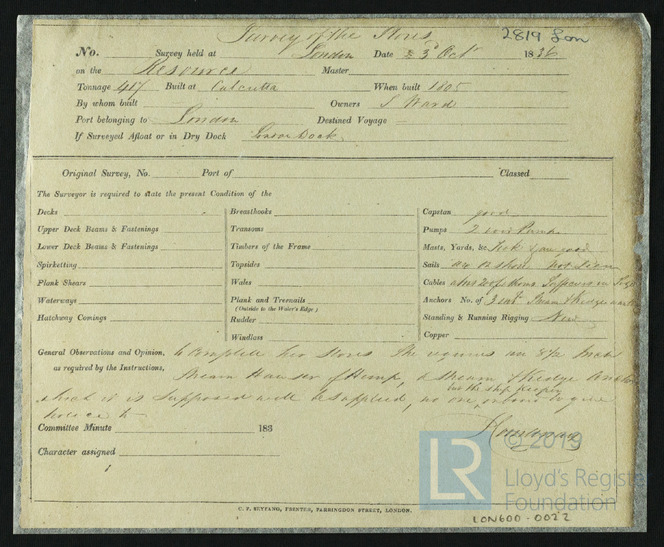 Survey of the Stores 2819 Lon
No. Survey held at London Date 3d Oct 1836
on the Resource Master
Tonnage 417 Built at Calcutta When built 1805
By whom built Owners S Ward
Port belonging to London Destined Voyage
If Surveyed Afloat or in Dry Dock Dock
Original Survey, No. Port of Classed
The Surveyor is required to state the present Condition of the
Decks Breasthooks Capstan good
Upper Deck Beams & Fastenings Transoms Pumps 2 iron Pumps
Lower Deck Beams & Fastenings Timbers of the Frame Masts, Yards, &c.
Spirketting Topsides Sails not seen
Plank Shears Wales Cables
Waterways Plank and Treenails Anchors No. of 3
(Outside to the Water's Edge)
Hatchway Comings Rudder Standing & Running Rigging New
Windlass Copper
General Observations and Opinion, to complete her Stores She requires an 8½ Inch
as required by the Instructions, Stream Hawser of Hemp, a Stream & Kedge Anchor
but the ship keeper
which it is supposed will be supplied, no one on board to give
notice to
Committee Minute 183
Character assigned
© 2019
LR
Lloyd's Register
Foundation
C. F. SEYFANG, PRINTER, FARRINGDON STREET, LONDON.
LON600-0022